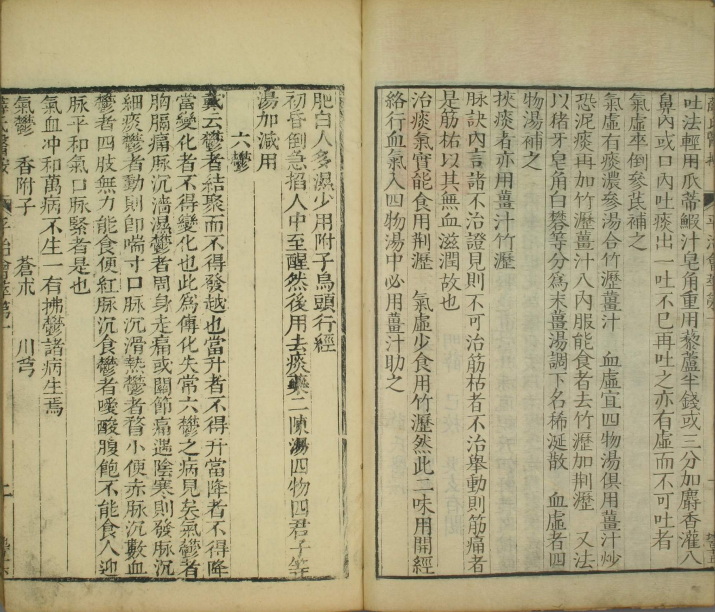 吐法輕用瓜蒂鰕汁皂角重用藜蘆半錢或三分加麝香灌入
鼻內或口內吐痰出一吐不已再吐之亦有虛而不可吐者
氣虛卒倒參芪補之
氣虛有痰濃參湯合竹瀝薑汁 血虛宜四物湯俱用薑汁炒
恐泥痰再加竹瀝薑汁入內服能食者去竹瀝加荆瀝 又法
以猪牙皂角白礬等分爲末薑湯調下名稀涎散 血虛者四
物湯補之
挾痰者亦用薑汁竹瀝
脉訣內言諸不治證見則不可治筋枯者不治舉動則筋痛者
是筋枯以其無血滋潤故也
治痰氣實能食用荆瀝 氣虛少食用竹瀝然此二味用開經
絡行血氣入四物湯中必用薑汁助之
肥白人多濕少用附子烏頭行經
初昏倒急掐人中至醒然後用去痰藥二陳湯四物四君子等
湯加減用
六鬱
戴云鬱者結聚而不得發越也當升者不得升當降者不得降
當變化者不得變化也此爲傳化失常六鬱之病見矣氣鬱者
胸脇痛脉沉濇濕鬱者周身走痛或關節痛遇陰寒則發脉沉
細痰鬱者動則卽喘寸口脉沉滑熱鬱者瞀小便赤脉沉數血
鬱者四肢無力能食便紅脉沉食鬱者噯酸腹飽不能食人迎
脉平和氣口脉緊者是也
氣血冲和萬病不生一有拂鬱諸病生焉
氣鬱 香附子 蒼朮 川芎